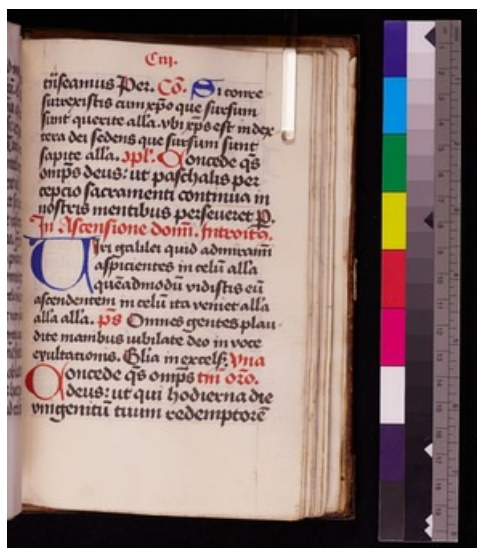 Ciij.
tüseamus Per. Cō. Si conre
surrexistis cum xp̄o que sursum
sunt querite alla. vbi xp̄s est in dex
tera dei sedens que sursum sunt
sapite alla. 9pl'. Concede q̄s
omp̄s deus: ut paschalis per
cepcio sacramenti continua in
nostris mentibus perseueret P.
In Ascensione domī. Introitꝰ.
Viri galilei quid admiramī
aspicientes in celū alla
quēadmodū vidistis eū
ascendentem in celū ita veniet alla
alla alla. p̄s Omnes gentes plau-
dite manibus iubilate deo in voce
exultationis. Glia in excels̄. Vna
Concede q̄s omp̄s tm̄ orō.
deus: ut qui hodierna die
vnigenitū tuum redemptorē